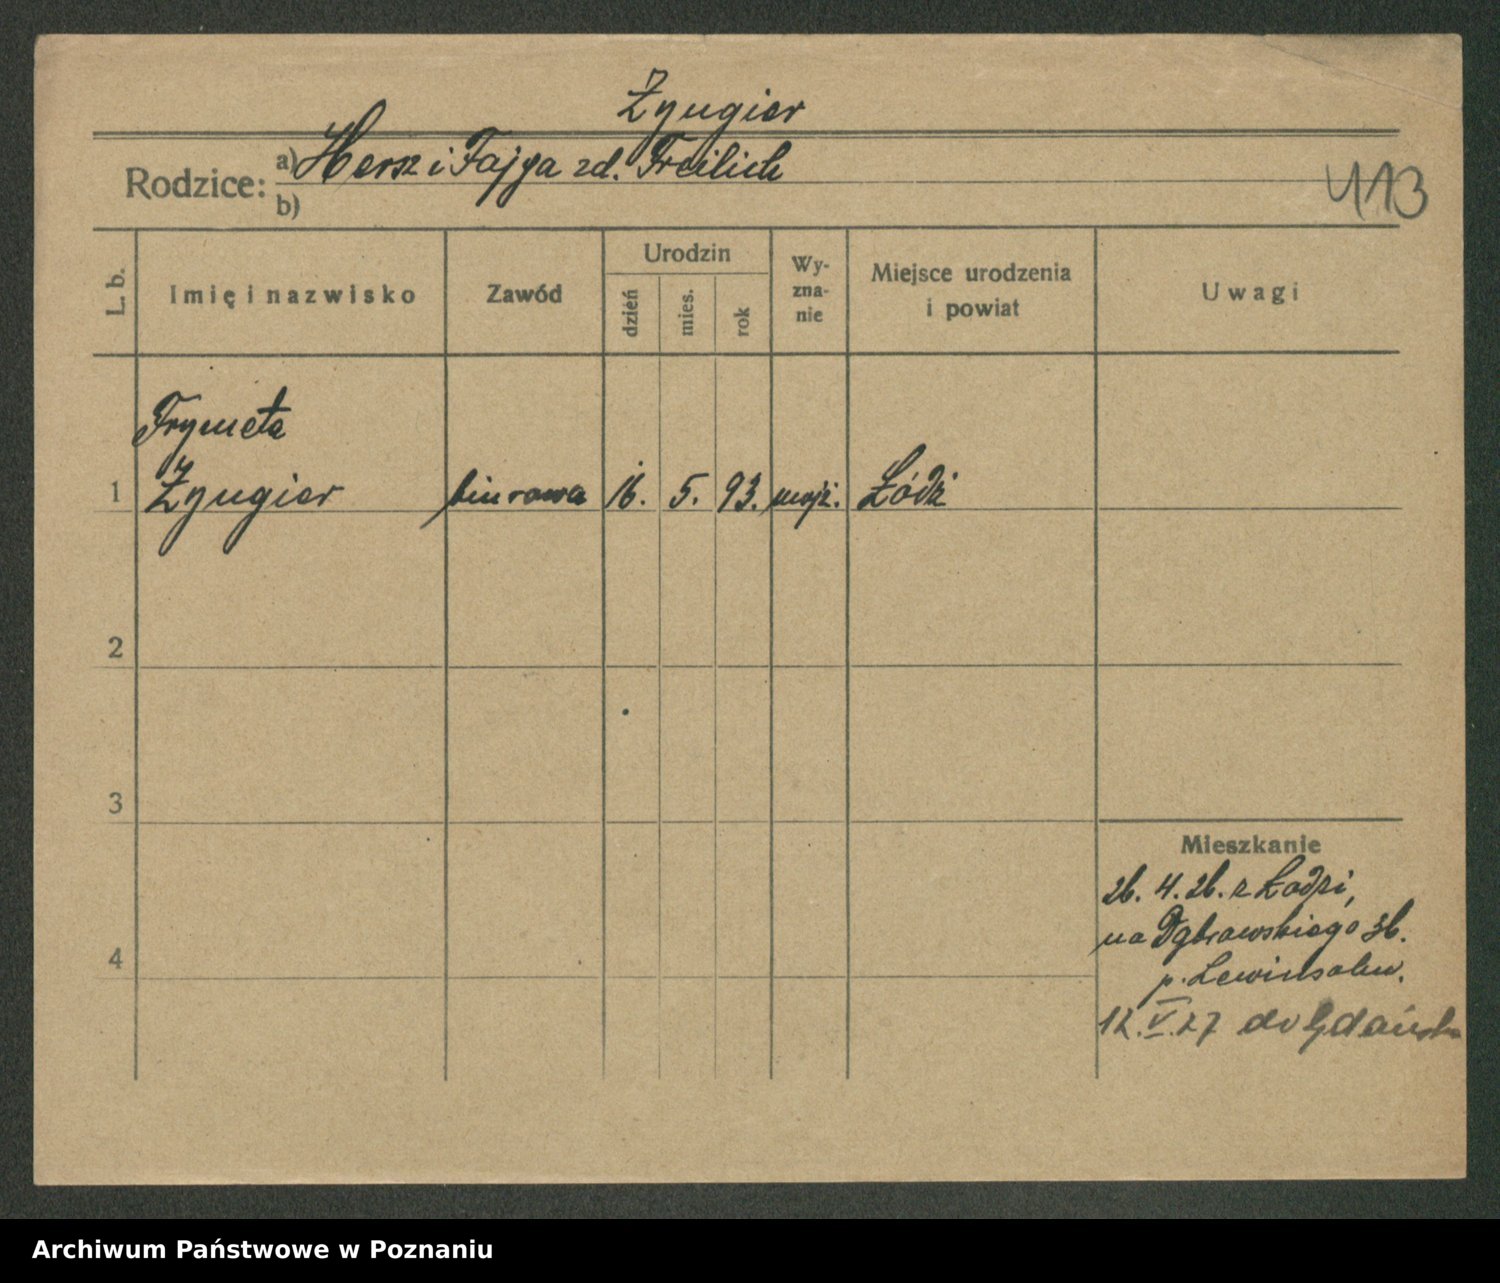 Żyngier
Rodzice: a) Hersz i Fajga zd. Freilich
b)
413
L. b.
Imię i nazwisko
Zawód
Urodzin
dzień
mies.
rok
Wy-
zna-
nie
Miejsce urodzenia
i powiat
Uwagi
Frymeta
1 Żyngier biurowa 16. 5. 93. mojż. Łódź
2
3
4
Mieszkanie
26. 4. 26. z Łodzi,
na Dąbrowskiego 36.
p. Lewinsohn.
12.V.27 do Gdańska
Archiwum Państwowe w Poznaniu